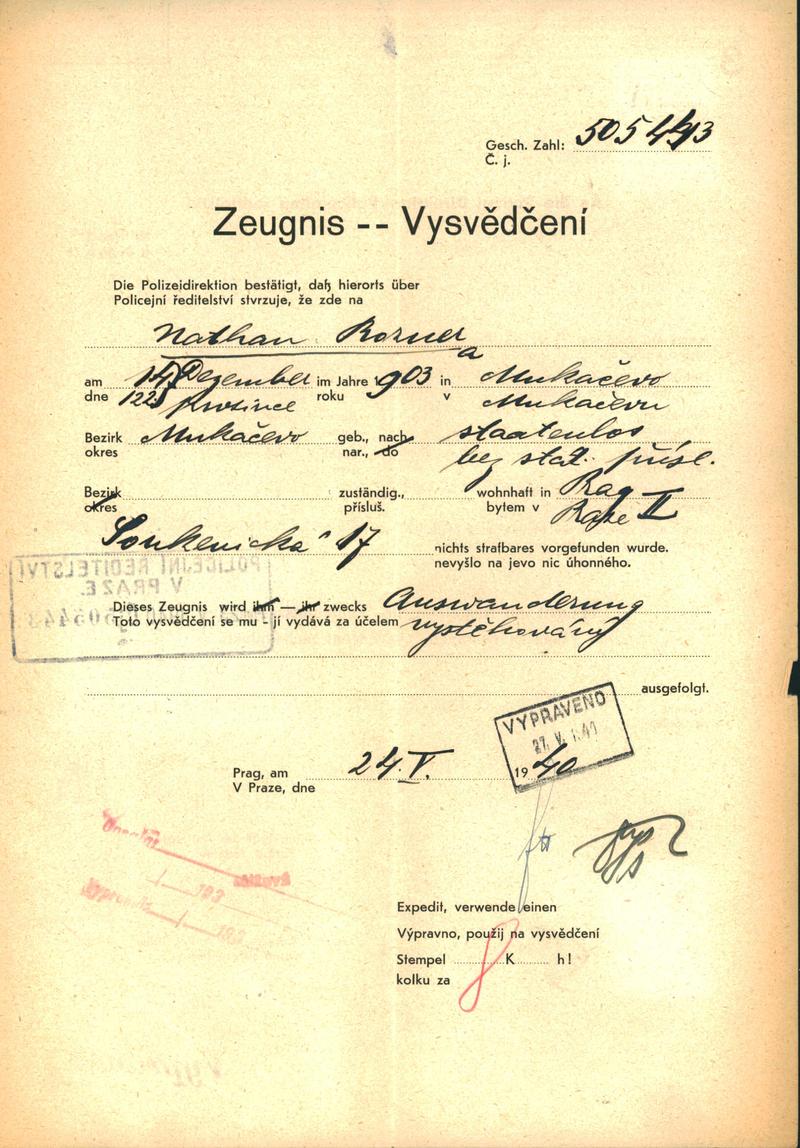 Gesch. Zahl: 505443
Č. j.
Zeugnis -- Vysvědčení
Die Polizeidirektion bestätigt, daß hierorts über
Policejní ředitelství stvrzuje, že zde na
Nathan Rozner
a
am 14 Dezember im Jahre 1903 in Mukačevo
dne prosince roku v Mukačevu
Bezirk Mukačevo geb., nach staatenlos
okres nar., do bez stát. přísl.
Bezirk zuständig., wohnhaft in Prag II
okres přísluš. bytem v Praze
Soukenická 17 nichts strafbares vorgefunden wurde.
nevyšlo na jevo nic úhonného.
POLICEJNÍ ŘEDITELSTVÍ
V PRAZE.
505443
Dieses Zeugnis wird ihm — ihr zwecks Auswanderung
Toto vysvědčení se mu - jí vydává za účelem vystěhování
ausgefolgt.
VYPRAVENO
27. V.
Prag, am 24. V. 1940
V Praze, dne
Expedit, verwende einen
Výpravno, použij na vysvědčení
Stempel K h!
kolku za 8